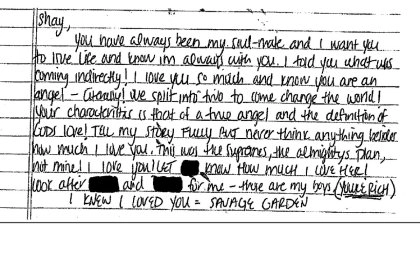 Shay,
you have always been my soul-mate and I want you
to live life and know im always with you. I told you what was
coming indirectly! I love you so much and know you are an
angel - literally! We split into two to come change the world!
Your characteristics is that of a true angel and the definition of
GODS love! Tell my story fully but never think anything besides
how much I love you. This was the supremes, the almightys plan,
not mine! I love you! Let know how much I love her!
look after and for me - those are my boys (You're Rich)
I KNEW I LOVED YOU = SAVAGE GARDEN